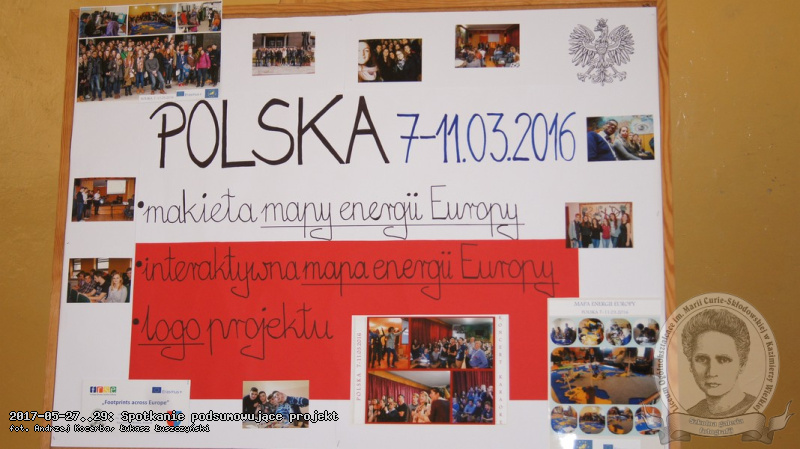 POLSKA 7-11.03.2016
• makieta mapy energii Europy
• interaktywna mapa energii Europy
• logo projektu
POLSKA 7-11.03.2016
MAPA ENERGII EUROPY
POLSKA 7-11.03.2016
Erasmus+
„Footprints across Europe”
2017-05-27..29: Spotkanie podsumowujące projekt
fot. Andrzej Kocerba, Łukasz Łuszczyński
Liceum Ogólnokształcące im. Marii Curie-Skłodowskiej w Kazimierzy Wielkiej
Szkolna galeria
fotografii